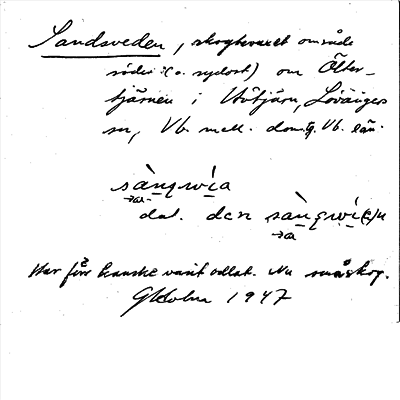 Sandsveden, skogbevuxet område
söder (o. sydost) om Älter-
tjärnen i Uvtjärn, Lövångers
sn, Vb. mell. doms. Vb. län.
sàŋgwìa
dat. den sàŋgwì(e)n
Har förr kanske varit odlat. Nu småskog.
GHolm 1947